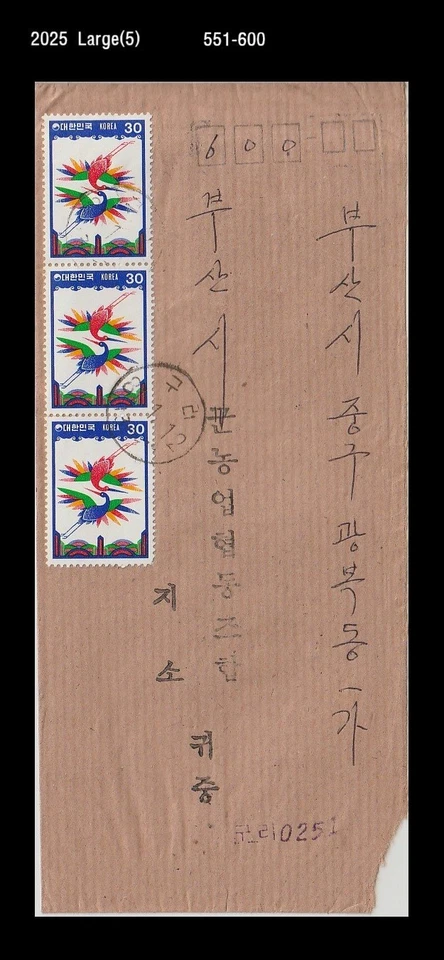 2025 Large(5) 551-600
대한민국 KOREA 30
대한민국 KOREA 30
대한민국 KOREA 30
600
부산시 중구 광복동 一가
부산시
농업협동조합
지소
귀중
0251